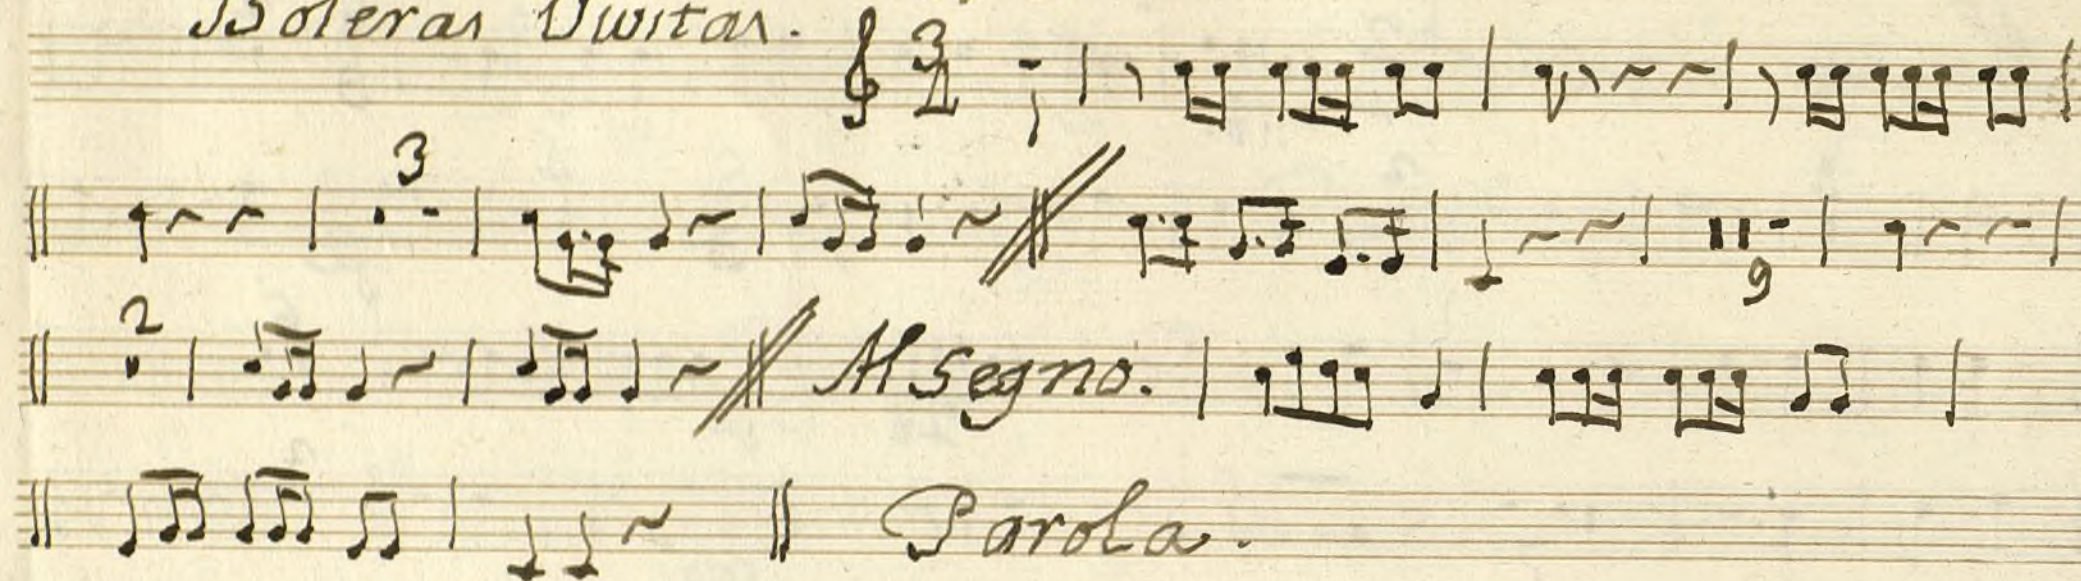 Boleras Vivitas.
3
2
3
9
2
Al segno.
Parola.